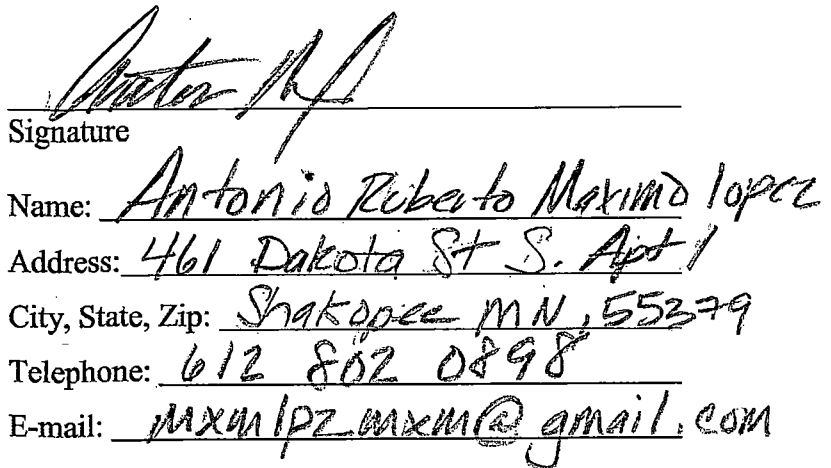 Signature
Name: Antonio Ruberto Maximo lopez
Address: 461 Dakota St S. Apt 1
City, State, Zip: Shakopee MN, 55379
Telephone: 612 802 0898
E-mail: mxmlpzmxm@gmail.com